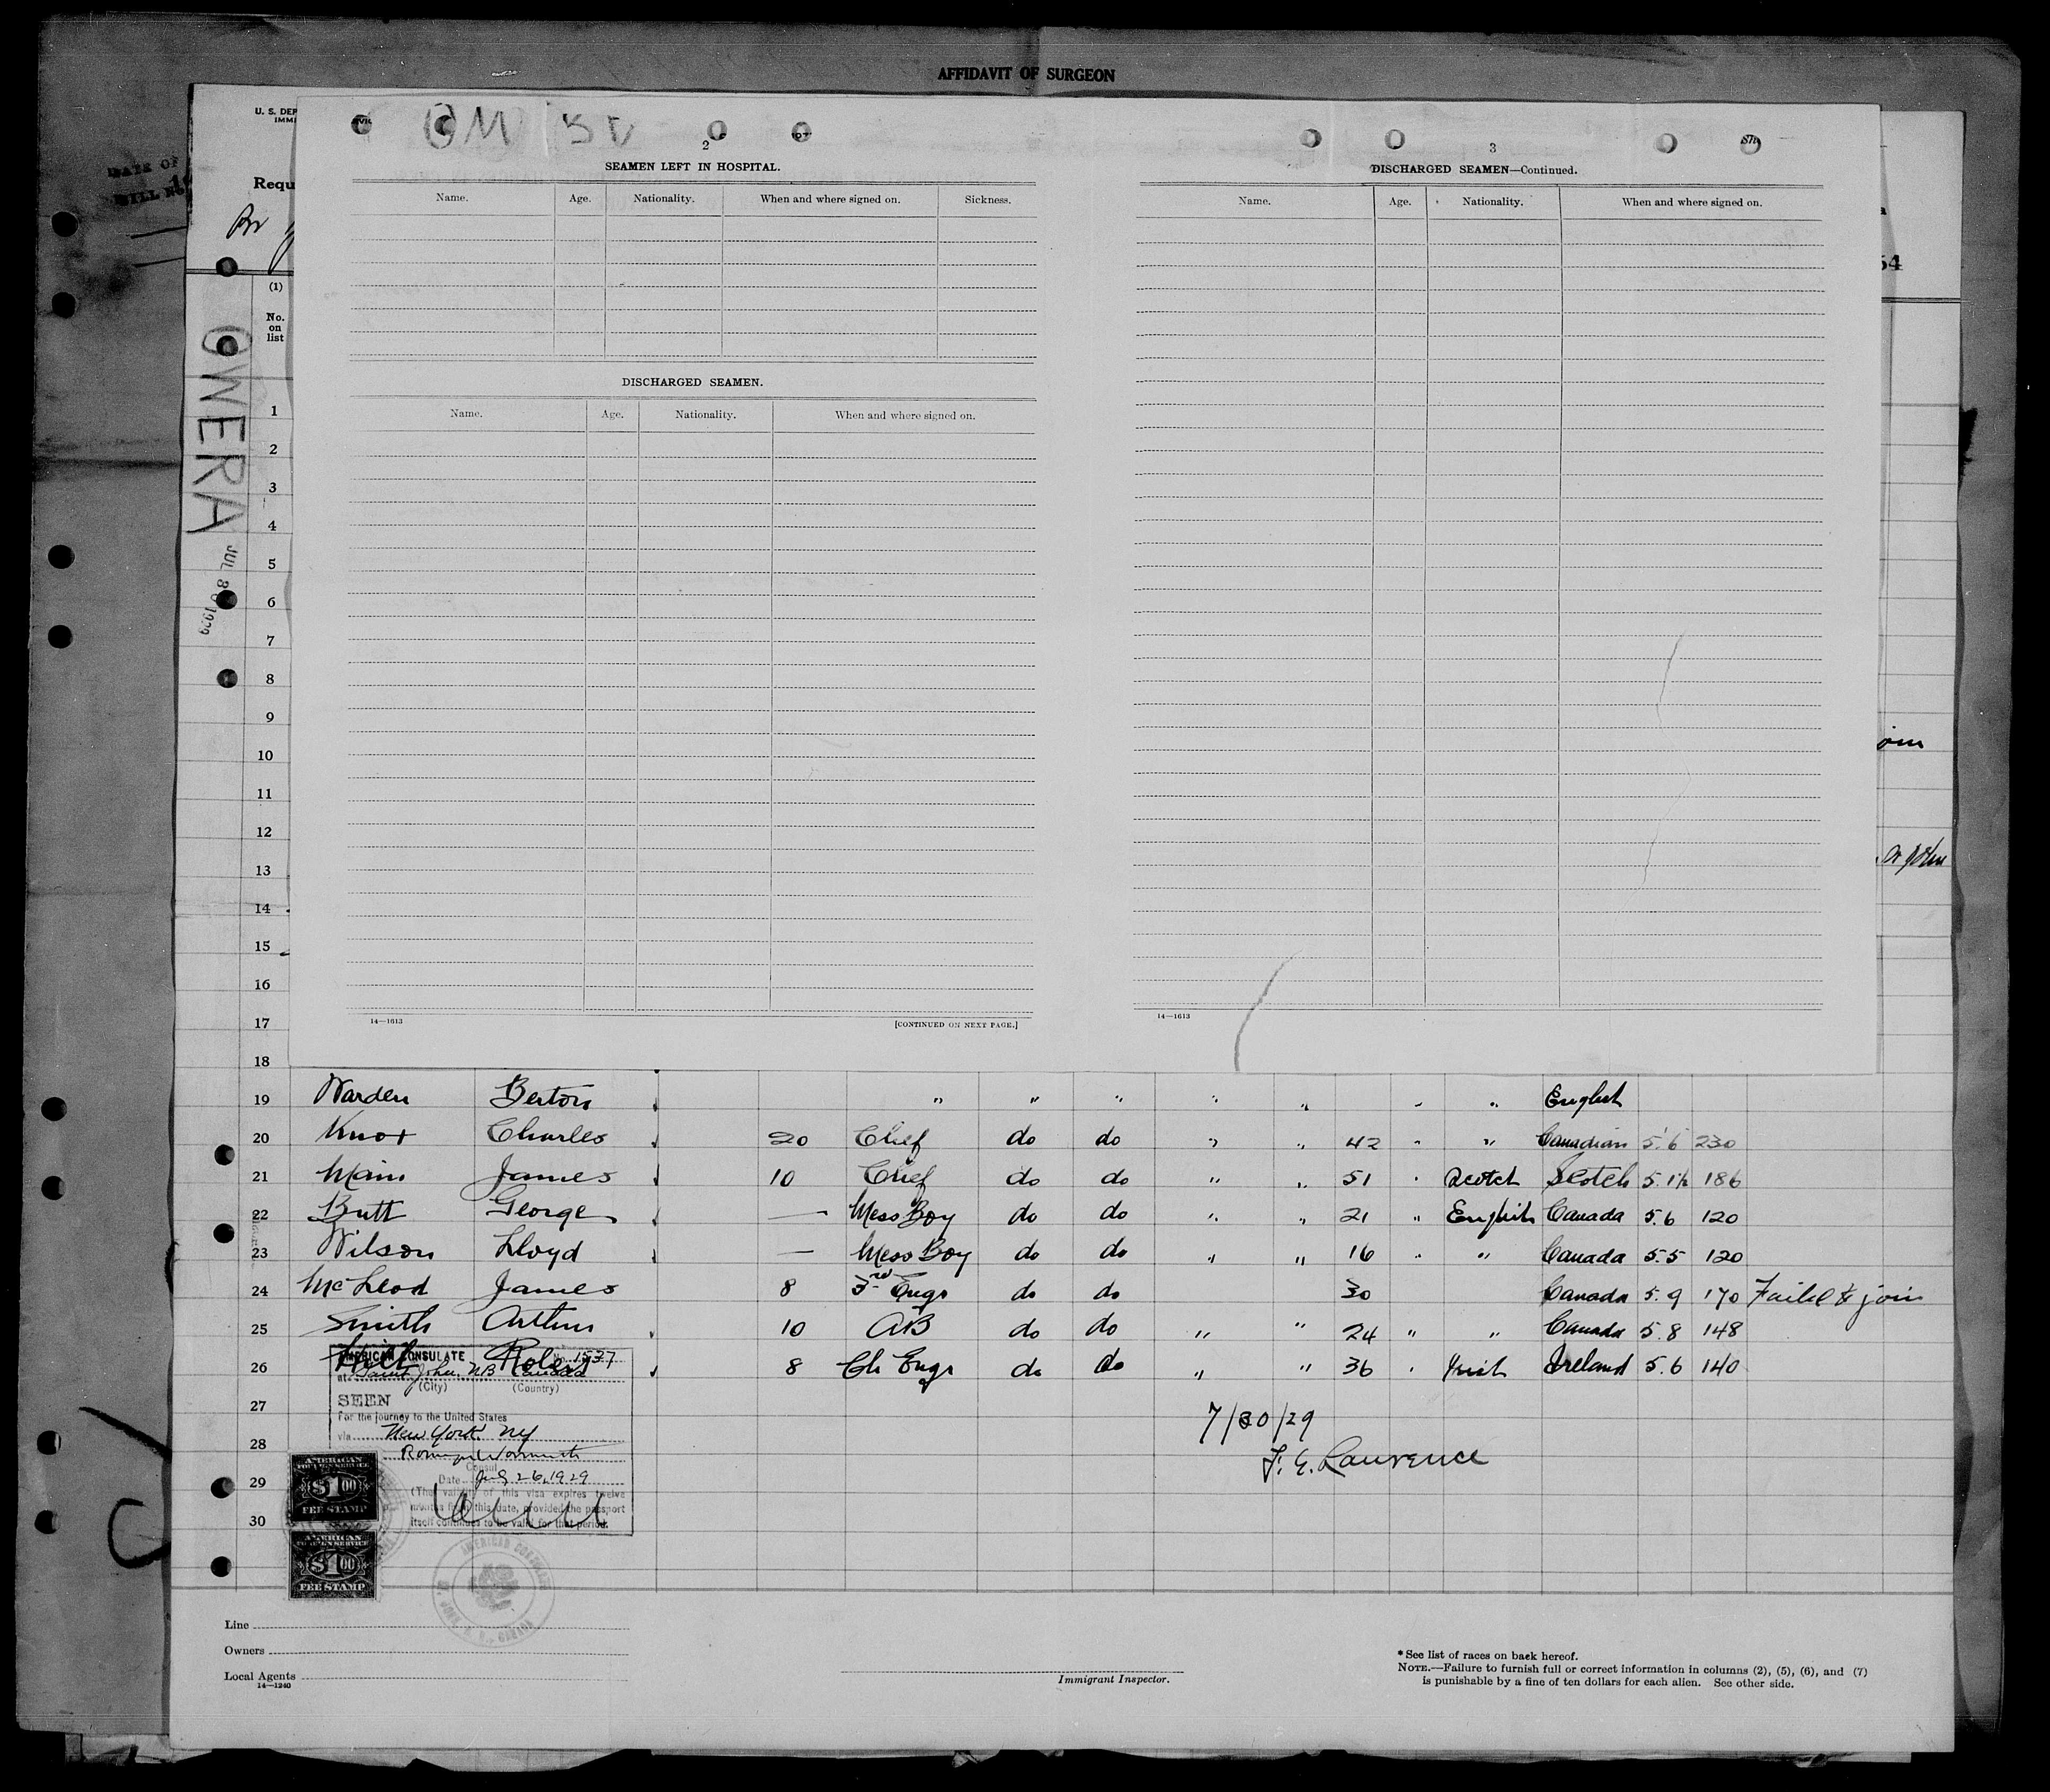 AFFIDAVIT OF SURGEON
DATE OF
BILL No.
U. S. DEP
IMMI
Requ
Br
54
2
SEAMEN LEFT IN HOSPITAL.
Name. Age. Nationality. When and where signed on. Sickness.
DISCHARGED SEAMEN.
Name. Age. Nationality. When and where signed on.
14—1613
[CONTINUED ON NEXT PAGE.]
3
DISCHARGED SEAMEN—Continued.
Name. Age. Nationality. When and where signed on.
14—1613
(1)
No.
on
list
OWERA
JUL 30 1929
1
2
3
4
5
6
7
8
9
10
11
12
13
14
15
16
17
18
19 Warden Berton " " " " " " " English
20 Knox Charles 20 Chef do do " " 42 " " Canadian 5.6 230
21 Main James 10 Chief do do " " 51 " Scotch Scotch 5.1½ 186
22 Butt George — Mess Boy do do " " 21 " English Canada 5.6 120
23 Wilson Lloyd — Mess Boy do do " " 16 " " Canada 5.5 120
24 McLeod James 8 3rd Engr do do 30 Canada 5.9 170 Failed to join
25 Smith Arthur 10 AB do do " " 24 " " Canada 5.8 148
26 Robert 8 Ch Engr do do " " 36 " Irish Ireland 5.6 140
27
28
29
30
AMERICAN CONSULATE No. 1537
at Saint John, NB Canada
(City) (Country)
SEEN
For the journey to the United States
via New York NY
Consul
Date July 26, 1929
(The validity of this visa expires twelve
months from this date, provided the passport
itself continues to be valid for that period.
7/30/29
J. E. Lawrence
AMERICAN
FOREIGN SERVICE
$1.00
FEE STAMP
AMERICAN
FOREIGN SERVICE
$1.00
FEE STAMP
AMERICAN CONSULATE
ST. JOHN, N. B., CANADA
Line
Owners
Local Agents
14—1240
Immigrant Inspector.
* See list of races on back hereof.
NOTE.—Failure to furnish full or correct information in columns (2), (5), (6), and (7)
is punishable by a fine of ten dollars for each alien. See other side.